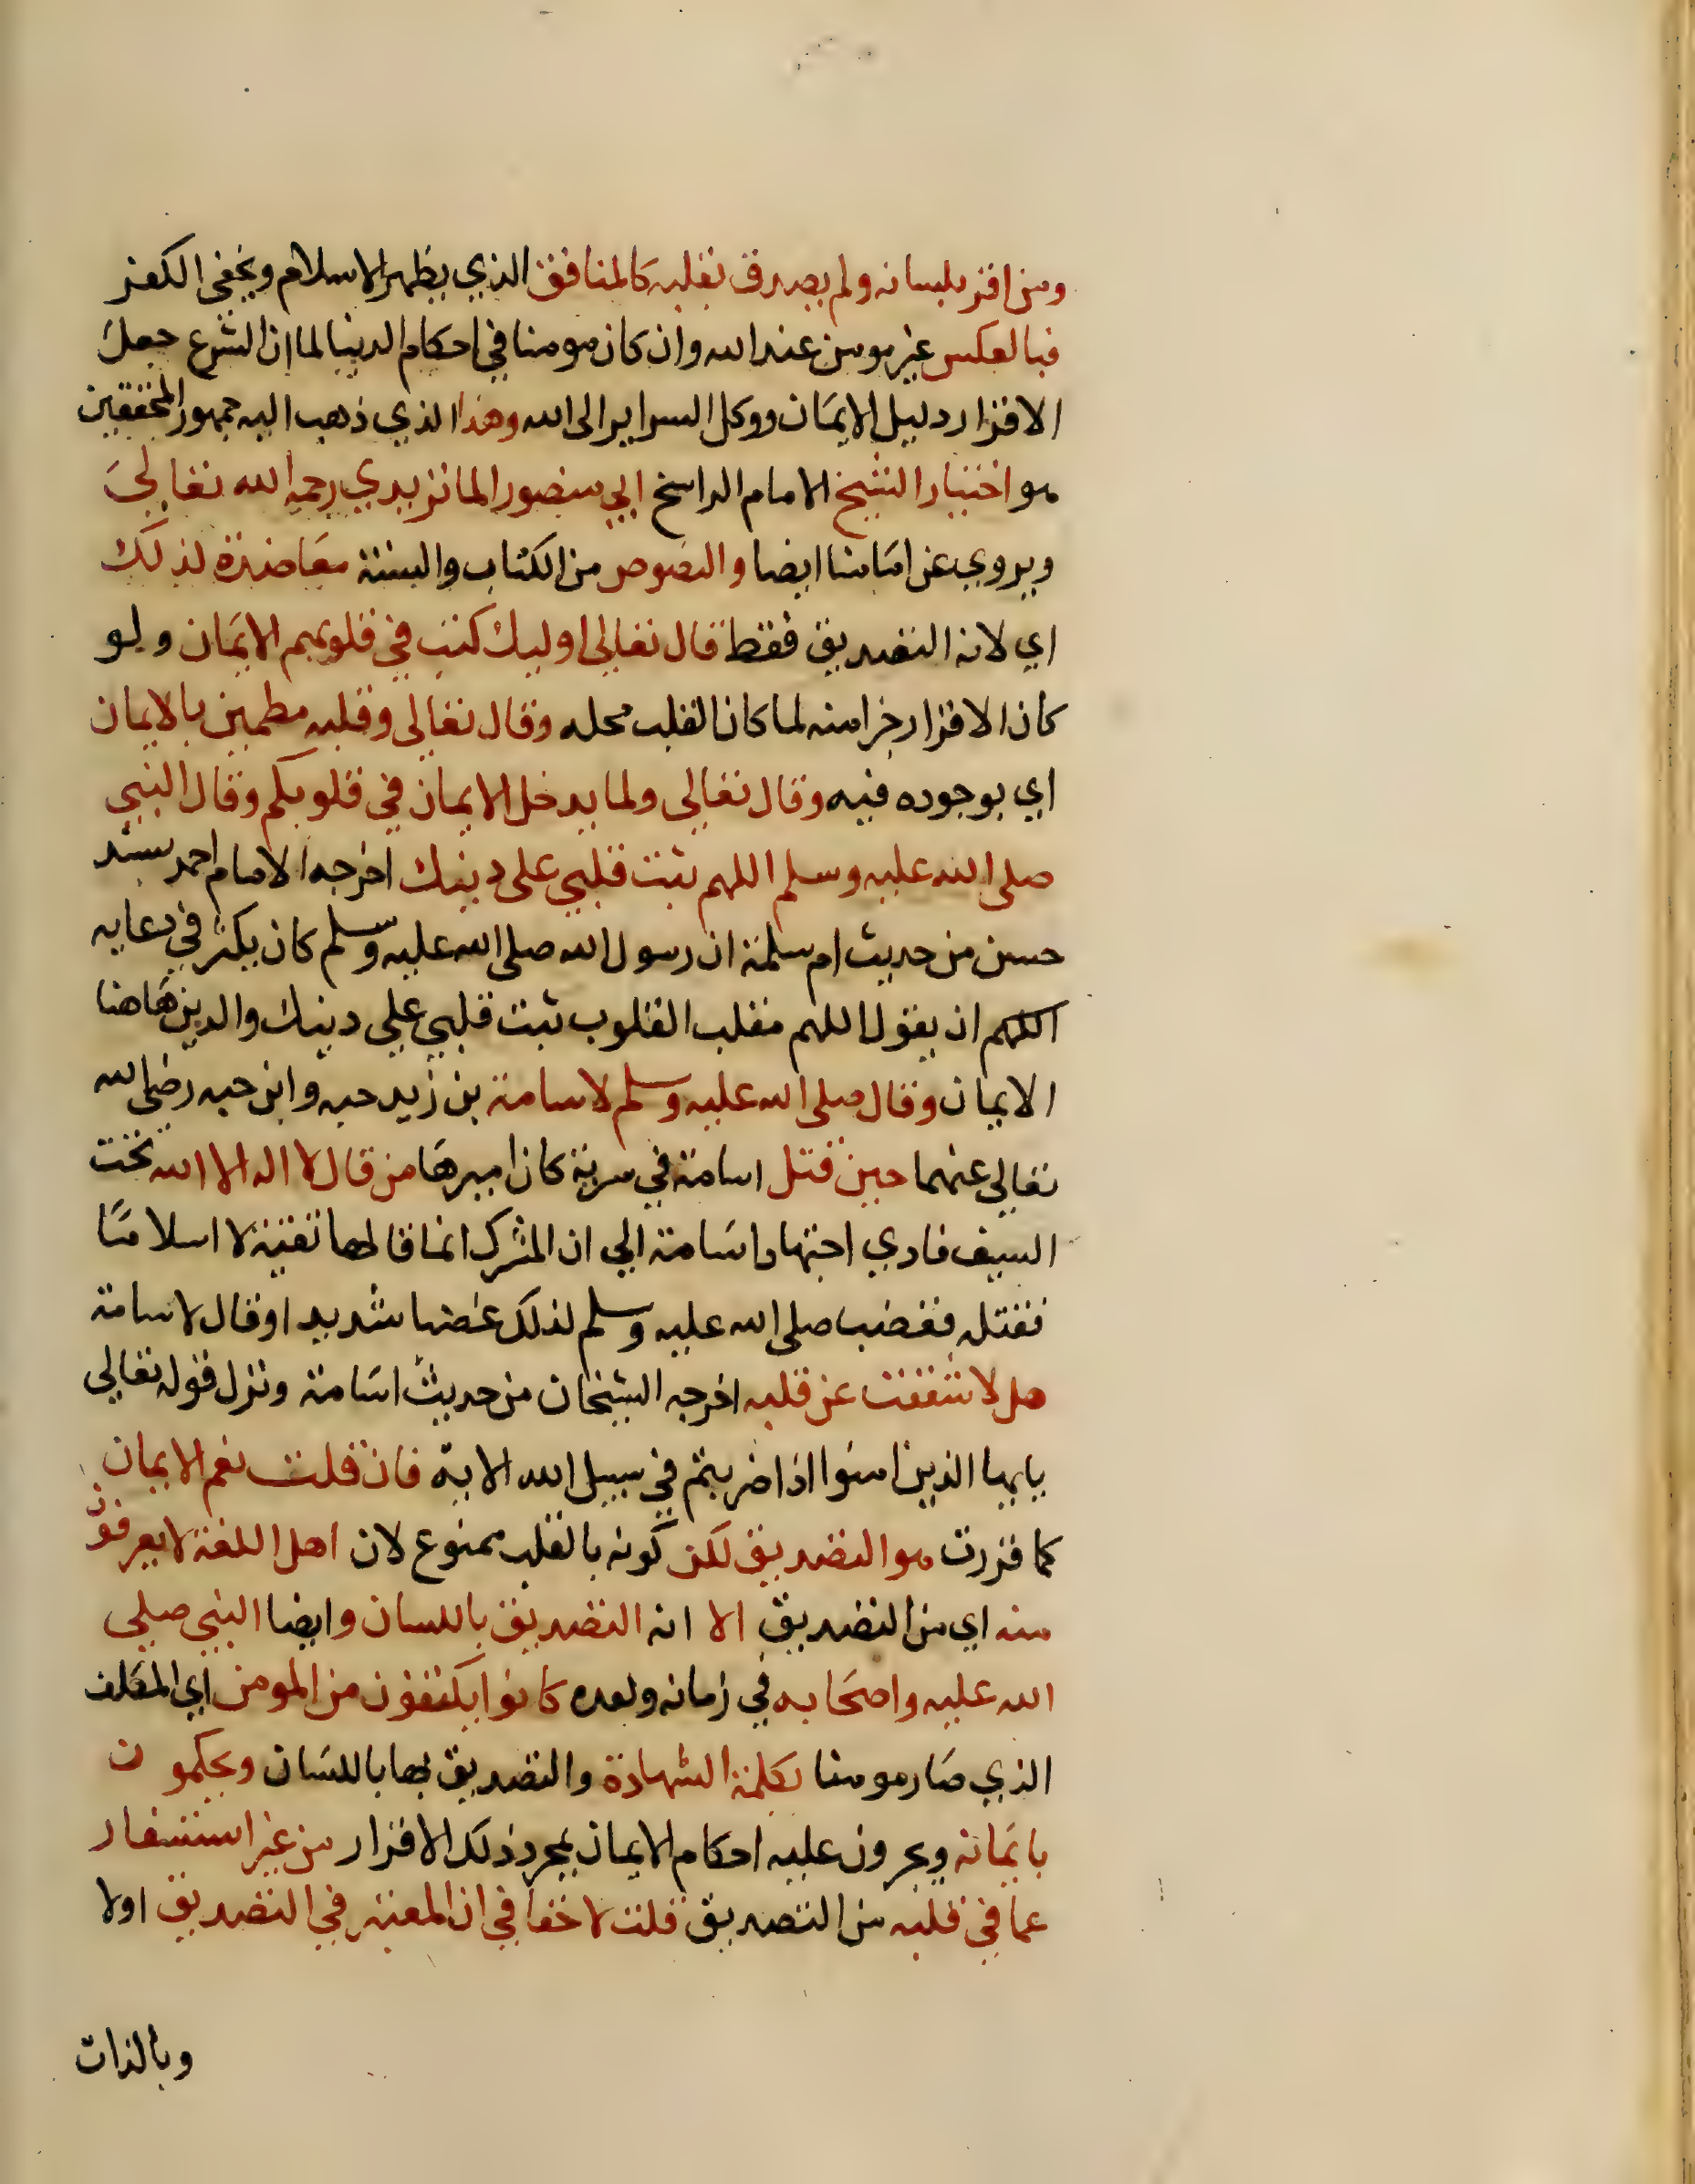 ومن اقر بلسانه ولم يصدق بقلبه كالمنافق الذي يظهر الاسلام ويخفى الكفر
فبالعكس غير مومن عند الله وان كان مومنا في احكام الدنيا لما ان الشرع جعل
الاقرار دليل الايمان ووكل السراير الى الله وهذا الذي ذهب اليه جمهور المحققين
هو اختيار الشيخ الامام الراسخ ابي منصور الماتريدي رحمه الله تعالى
ويروي عن امامنا ايضا والنصوص من الكتاب والسنة معاضدة لذلك
اي لانه التصديق فقط قال تعالى اوليك كتب في قلوبهم الايمان ولو
كان الاقرار جزا منه لما كان القلب محله وقال تعالى وقلبه مطمين بالايمان
اي بوجوده فيه وقال تعالى ولما يدخل الايمان في قلوبكم وقال النبي
صلى الله عليه وسلم اللهم ثبت قلبي على دينك اخرجه الامام احمد بسند
حسن من حديث ام سلمة ان رسول الله صلى الله عليه وسلم كان يكثر في دعايه
اللهم ان يقول اللهم مقلب القلوب ثبت قلبي على دينك والدين هاهنا
الايمان وقال صلى الله عليه وسلم لاسامة بن زيد حبه وابن حبه رضى الله
تعالى عنهما حين قتل اسامة في سرية كان اميرها من قال لا اله الا الله تحت
السيف فادي اجتهاد اسامة الى ان المشرك انما قالها تقية لا اسلاما
فقتله فغضب صلى الله عليه وسلم لذلك غضبا شديدا وقال لاسامة
هل لا شققت عن قلبه اخرجه الشيخان من حديث اسامة ونزل قوله تعالى
يايها الذين امنوا اذا ضربتم في سبيل الله الاية فان قلت نعم الايمان
كما قررت هو التصديق لكن كونه بالقلب ممنوع لان اهل اللغة لا يعرفون
منه اي من التصديق الا انه التصديق باللسان وايضا النبي صلى
الله عليه واصحابه في زمانه وبعده كانوا يكتفون من المومن اي المكلف
الذي صار مومنا بكلمة الشهادة والتصديق بها باللسان ويحكمون
بايمانه ويجرون عليه احكام الايمان بمجرد ذلك الاقرار من غير استفسار
عما في قلبه من التصديق قلت لا خفا في ان المعتبر في التصديق اولا
وبالذات